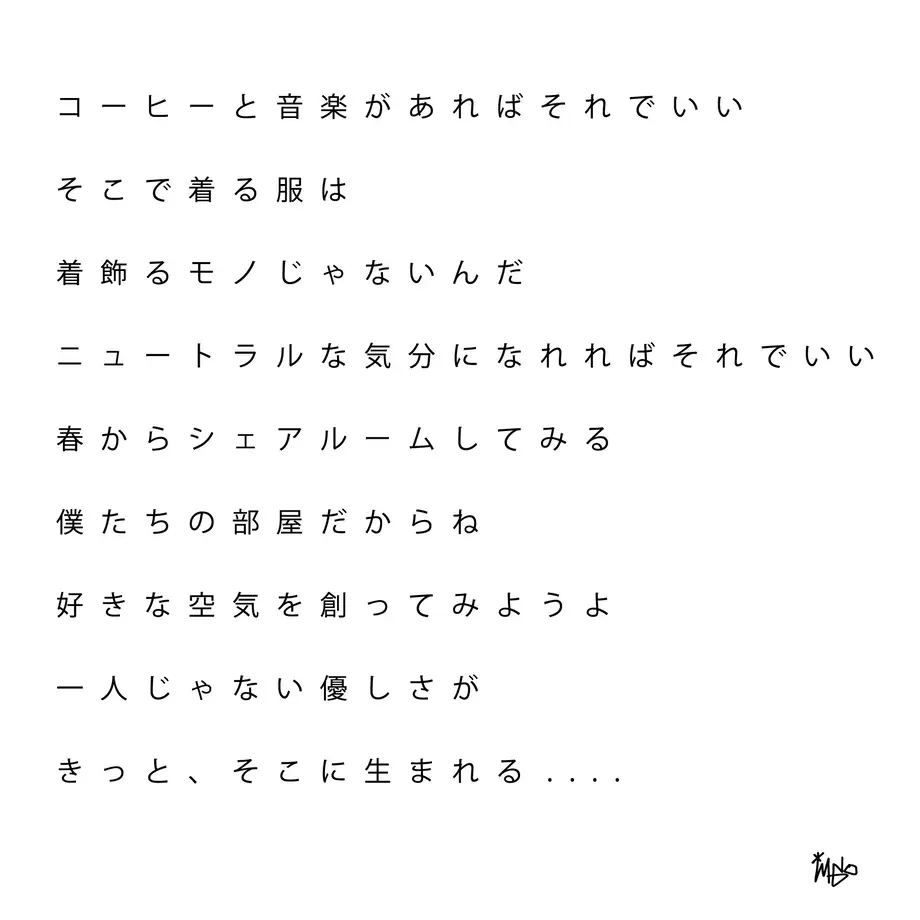 コーヒーと音楽があればそれでいい
そこで着る服は
着飾るモノじゃないんだ
ニュートラルな気分になれればそれでいい
春からシェアルームしてみる
僕たちの部屋だからね
好きな空気を創ってみようよ
一人じゃない優しさが
きっと、そこに生まれる....